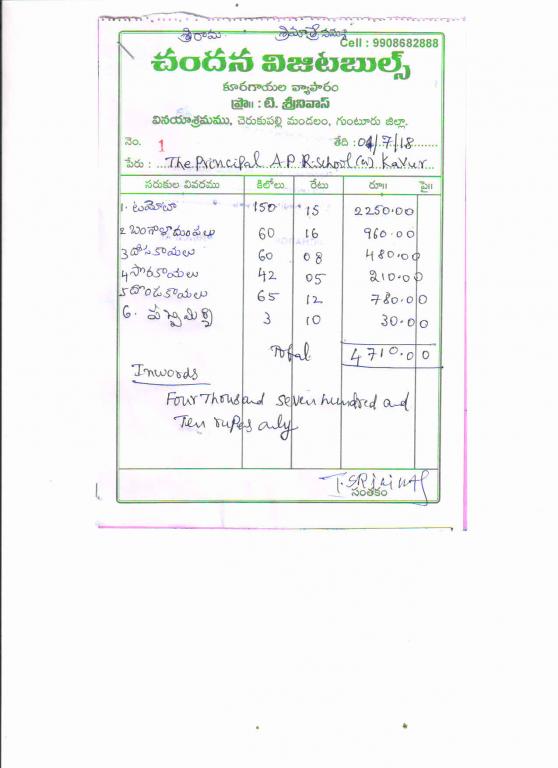 శ్రీరామ శ్రీమాత్రేనమః
Cell : 9908682888
చందన విజిటబుల్స్
కూరగాయల వ్యాపారం
ప్రొ॥ : టి. శ్రీనివాస్
వినయాశ్రమము, చెరుకుపల్లి మండలం, గుంటూరు జిల్లా.
నెం. 1 తేది : 01/7/18
పేరు : The Principal A.P.R.School (B) Kavur
సరుకుల వివరము కిలోలు రేటు రూ॥ పై॥
1. టమోటా 150 15 2250.00
2 బంగాళాదుంపలు 60 16 960.00
3 దోసకాయలు 60 08 480.00
4 సొరకాయలు 42 05 210.00
5 దొండకాయలు 65 12 780.00
6. పచ్చిమిర్చి 3 10 30.00
Total 4710.00
Inwords
Four Thousand seven hundred and
Ten rupes only
T. SRINIVAS
సంతకం